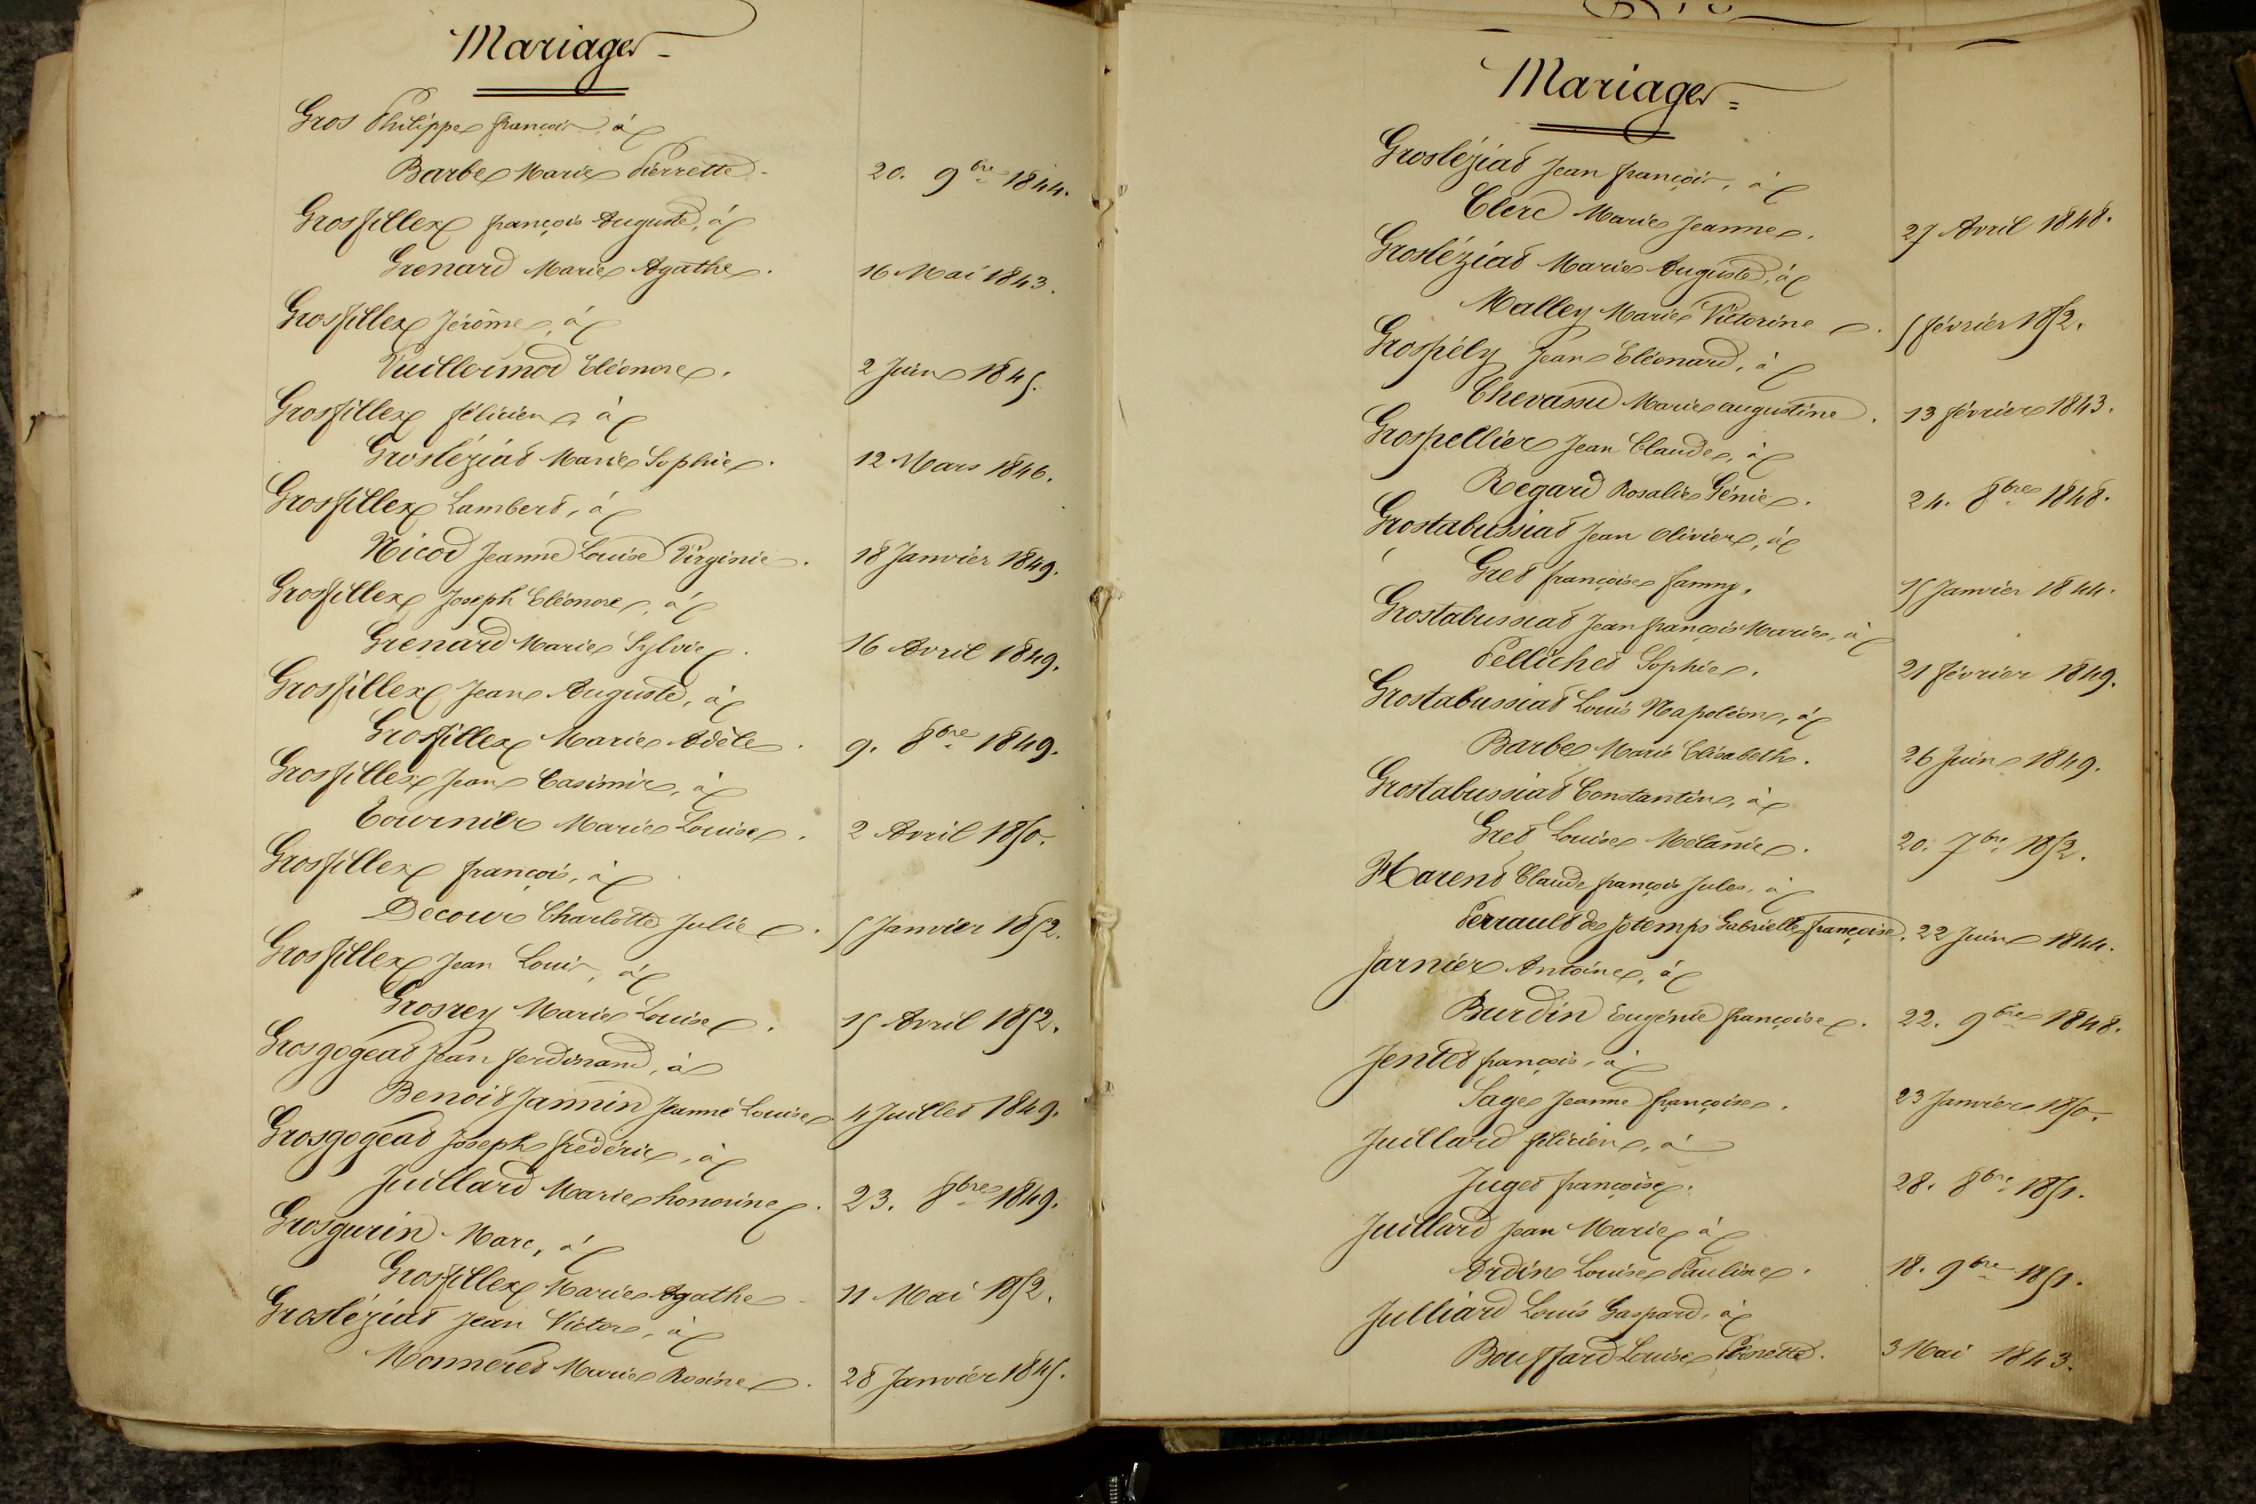 Mariages
Gros Philippe françois à
Barbe Marie Pierrette. 20. 9bre 1844.
Grosfillex françois Auguste, à
Grenard Marie Agathe. 16 Mai 1843.
Grosfillex Jérôme, à
Vuillermod Eléonore. 2 Juin 1845.
Grosfillex félicien, à
Groslézias Marie Sophie. 12 Mars 1846.
Grosfillex Lambert, à
Nicod Jeanne Louise Virginie. 18 Janvier 1849.
Grosfillex Joseph Eléonore, à
Grenard Marie Sylvie. 16 Avril 1849.
Grosfillex Jean Auguste, à
Grosfillex Marie Adèle. 9. 8bre 1849.
Grosfillex Jean Casimir, à
Tournier Marie Louise. 2 Avril 1850.
Grosfillex françois, à
Decour Charlotte Julie. 5 Janvier 1852.
Grosfillex Jean Louis, à
Grosrey Marie Louise. 15 Avril 1852.
Grosgogeat Jean ferdinand, à
Benoit Jannin Jeanne Louise 4 Juillet 1849.
Grosgogeat Joseph frédéric, à
Juillard Marie honorine. 23. 8bre 1849.
Grosgurin Marc, à
Grosfillex Marie Agathe 11 Mai 1852.
Grosléziat Jean Victor, à
Monneret Marie Rosine. 28 Janvier 1845.
Mariages
Grosléziat Jean françois, à
Clerc Marie Jeanne. 27 Avril 1848.
Grosléziat Marie Auguste, à
Malley Marie Victorine. 5 février 1852.
Grospély Jean Eléonard, à
Chevassu Marie augustine. 13 février 1843.
Grospellier Jean Claude, à
Regard Rosalie Génie. 24. 8bre 1848.
Grostabussiat Jean Olivier, à
Gret françoise fanny. 15 Janvier 1844.
Grostabussiat Jean françois Marie, à
Pellichet Sophie. 21 février 1849.
Grostabussiat Louis Napoléon, à
Barbe Marie Elisabeth. 26 Juin 1849.
Grostabussiat Constantin, à
Gret Louise Mélanie. 20. 7bre 1852.
Harent Claude françois Jules, à
Perrault de Jotemps Gabrielle françoise. 22 Juin 1844.
Jarnier Antoine, à
Burdin Eugénie françoise. 22. 9bre 1848.
Jentet françois, à
Sage Jeanne françoise. 23 Janvier 1850.
Juillard félicien, à
Juget françoise. 28. 8bre 1851.
Juillard Jean Marie à
Ordin Louise Pauline. 18. 9bre 1851.
Julliard Louis Gaspard, à
Bouffard Louise Pernette. 3 Mai 1843.